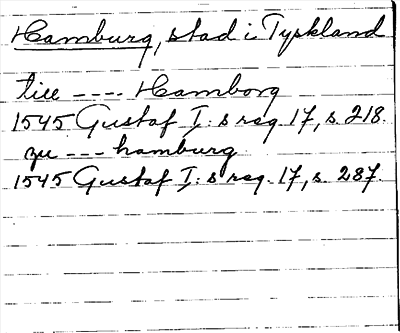 Hamburg, stad i Tyskland
till ---- Hamborg
1545 Gustaf I:s reg. 17, s. 218.
zu --- hamburg
1545 Gustaf I:s reg. 17, s. 287.